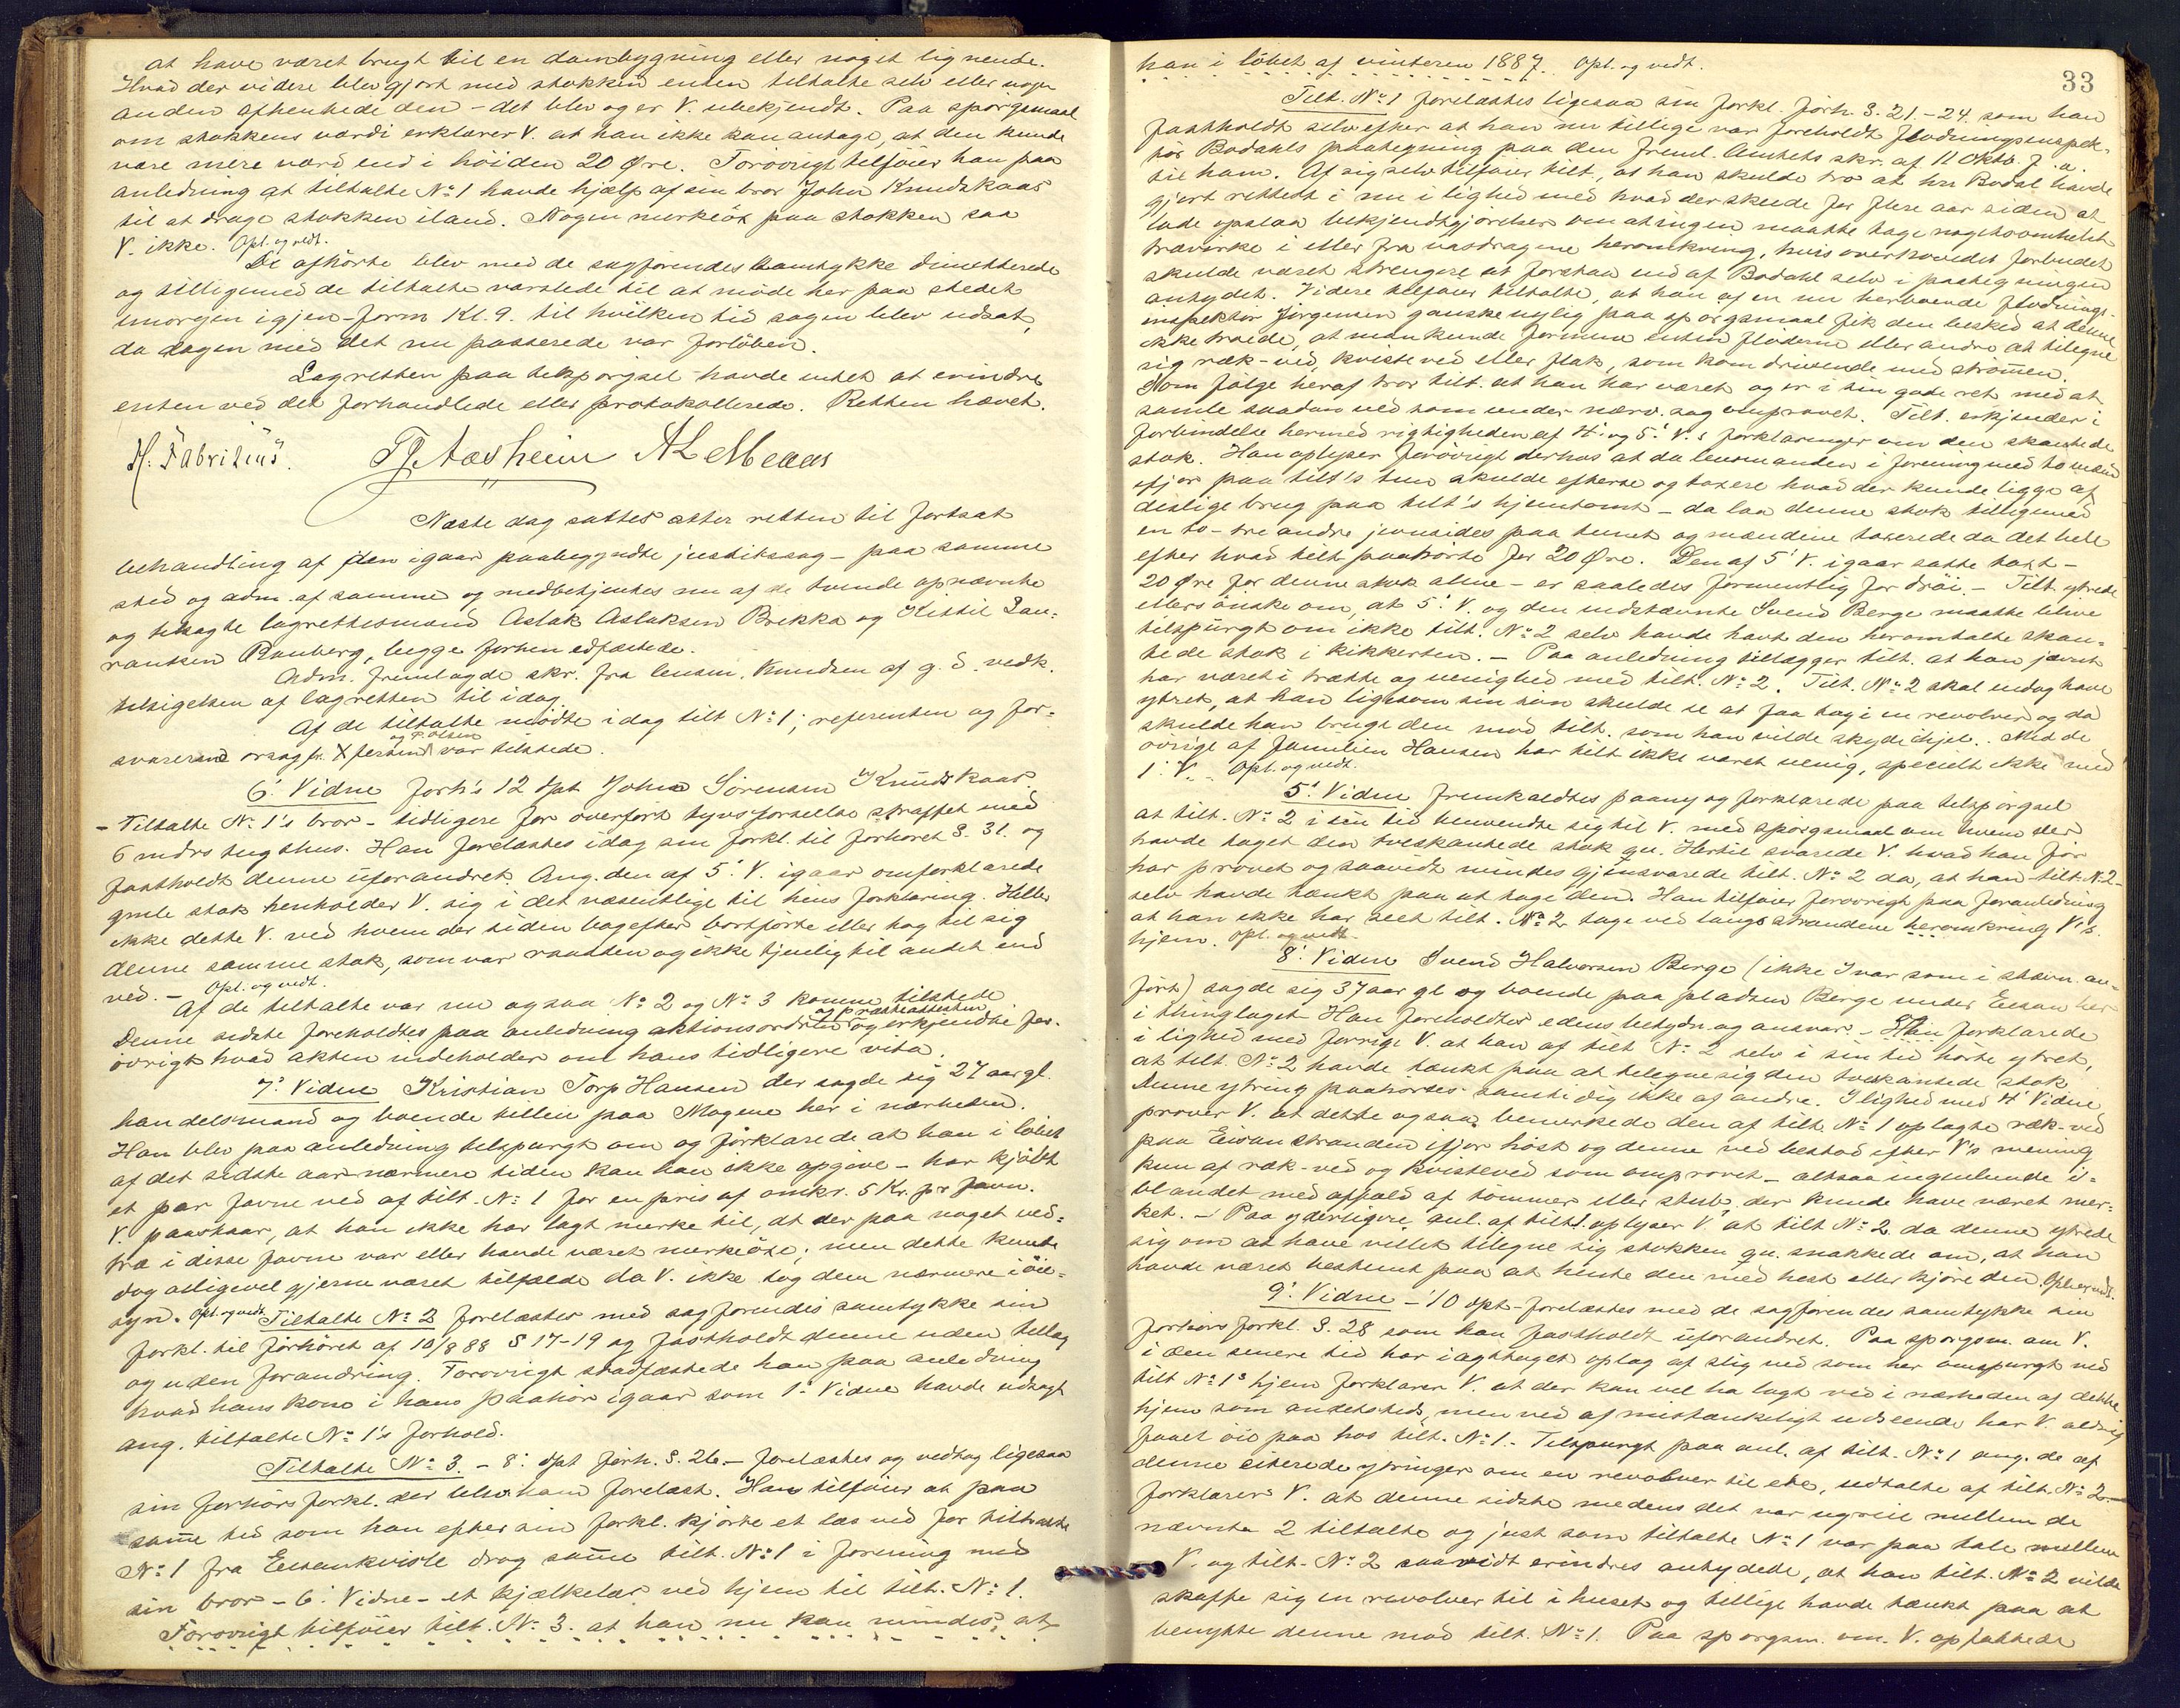 at have været brugt til en dambygning eller noget lignende.
Hvad der videre blev gjort med stokken enten tiltalte selv eller nogen
anden afhentede den – det blev og er V. ubekjendt. Paa spörgsmaal
om stokkens værdi erklærer V. at han ikke kan antage, at den kunde
være mere værd end i höiden 20 Øre. Forövrigt tilföier han paa
anledning at tiltalte No 1 havde hjælp af sin bror John Knudskaas
til at drage stokken iland. Nogen merkiöx paa stokken saa
V. ikke. Opl. og vedt.
De afhörte blev med de sagförendes samtykke dimitterede
og tilligemed de tiltalte varslede til at möde her paa stedet
imorgen igjen – form Kl. 9. til hvilken tid sagen blev udsat,
da dagen med det nu passerede var forlöben.
Lagretten paa tilspörgsel havde intet at erindre
enten ved det forhandlede eller protokollerede. Retten hævet.
H. Fabritius. Tj. Aasheim
Næste dag sattes atter retten til fortsat
behandling af den igaar paabegyndte justitssag – paa samme
sted og adm. af samme og medbetjentes nu af de tvende opnævnte
og tilsagte lagrettesmænd Aslak Aslaksen Brekka og Kittil Lau-
rantsen Ranberg, begge forhen edfæstede.
Adm. fremlagde skr. fra lensm. Knudsen af g. d. vedk.
tilsigelsen af lagretten til idag.
Af de tiltalte mödte idag tilt No 1; referenten og for-
svareren orsagfr. X testen og P. Olsen var tilstede.
6' Vidne forh's 12 dpt John Sörensen Knudskaas
– Tiltalte No 1's bror – tidligere for overfört tyvsforseelse straffet med
6 mdrs tugthus. Han forelæstes idag sin forkl. til forhöret S. 31. og
fastholdt denne uforandret. Ang. den af 5' V. igaar omforklarede
gmle stok henholder V. sig i det væsentlige til hins forklaring. Heller
ikke dette V. ved hvem der siden bagefter bortförte eller tog til sig
denne samme stok, som var raadden og ikke tjenlig til andet end
ved. – Opl. og vedt.
Af de tiltalte var nu ogsaa No 2 og No 3 komne tilstede
Denne sidste foreholdtes paa anledning aktionsordren og præsteattesten og erkjendte for-
övrigt hvad akten indeholder om hans tidligere vita.
7' Vidne Kristian Torp Hansen der sagde sig 27 aar gl.
handelsmand og boende tillen paa Mogene her i nærheden.
Han blev paa anledning tilspurgt om og forklarede at han i löbet
af det sidste aar nærmere tiden kan han ikke opgive – har kjöbt
et par favne ved af tilt. No 1 for en pris af omkr. 5 Kr. pr favn.
V. paastaar, at han ikke har lagt merke til, at der paa noget ved-
træ i disse favne var eller havde været merkiöxe; men dette kunde
dog alligevel gjerne været tilfælde da V. ikke tog dem nærmere i öie-
syn. Opl. og vedt. Tiltalte No 2 forelæstes med sagförendes samtykke sin
forkl. til forhöret af 10/8 88 S 17-19 og fastholdt denne uden tillæg
og uden forandring. Forövrigt stadfæstede han paa anledning
hvad hans kone i hans paahör igaar som 1' Vidne havde udsagt
ang. tiltalte No 1's forhold.
Tiltalte No 3. – 8: dpt forh. S. 26. – forelæstes og vedtog ligesaa
sin forhörsforkl. der blev ham forelæst. Han tilföier at paa
same tid som han efter sin forkl. kjörte et læs ved for tiltalte
No 1 fra Eisankviste drog same tilt. No 1 i forening med
sin bror – 6' Vidne – et kjælkelæs ved hjem til tilt. No 1.
Forövrigt tilföier tilt. No 3. at han nu kan mindes, at
33
han i löbet af vinteren 1887. Opl. og vedt.
Tilt. No 1 forelæstes ligesaa sin forkl. forh. S. 21.-24. som han
fastholdt selv efter at han nu tillige var foreholdt flödningsinspek-
tör Bødahls paategning paa den freml. Amtets skr. af 11 oktb. f. a.
til ham. Af sig selv tilföier tilt., at han skulde tro at hr. Bødal havde
gjort rettest i nu i lighed med hvad der skede for flere aar siden at
lade opslaa bekjendtgjörelser om at ingen maatte tage nogetsomhelst
trævirke i eller fra vasdragene heromkring, hvis overhovedet forbudet
skulde været strengere at forstaa end af Bødahl selv i paategningen
antydet. Videre tilföier tiltalte, at han af en nu herboende flödnings-
inspektör Jörgensen ganske nylig paa spörgsmaal fik den besked at denne
ikke troede, at man kunde formene enten flöderne eller andre at tilegne
sig ræk-ved, kvisteved eller flak, som kom drivende med strömen.
Som fölge heraf tror tilt. at han har været og er i sin gode ret med at
samle saadan ved som under nærv. sag omprövet. Tilt. erkjender i
forbindelse hermed rigtigheden af 4' og 5' V.s forklaringer om den skantede
stok. Han oplyser forövrigt derhos at da lensmanden i forening med to mænd
ifjor paa tilt's tun skulde efterse og taxere hvad der kunde ligge af
deslige brug paa tilt's hjemtomt – da laa denne stok tilligemed
en to-tre andre jevnsides paa tunet og mændene taxerede da det hele
efter hvad tilt paahörte for 20 Øre. Den af 5' V. igaar satte taxt –
20 Øre for denne stok alene – er saaledes formentlig for dröi. – Tilt. ytrede
ellers önske om, at 5' V. og den indstævnte Svend Berge maatte blive
tilspurgt om ikke tilt. No 2 selv havde havt den heromtalte skan-
tede stok i kikkerten. – Paa anledning tillægger tilt. at han jævnt
har været i trætte og uenighed med tilt. No 2. Tilt. No 2 skal endog have
ytret, at han ligesom sin sön skulde se at faa tag i en revolver og da
skulde han bruge den mod tilt. som han vilde skyde ihjel. Med de
övrige af familien Hansen har tilt ikke været uenig, specielt ikke med
1' V. Opl. og vedt.
5' Vidne fremkaldtes paany og forklarede paa tilspörgsel
at tilt. No 2 i sin tid henvendte sig til V. med spörgsmaal om hvem der
havde taget den tveskantede stok qu. Hertil svarede V. hvad han för
har prövet og saavidt mindes gjensvarede tilt. No 2 da, at han – tilt. N. 2 –
selv havde tænkt paa at tage den. Han tilföier forövrigt paa foranledning
at han ikke har seet tilt. No 2 tage ved langs strandene heromkring V's
hjem. Opl. og vedt.
8' Vidne Svend Halvorsen Berge (ikke Ivar som i stævn. an-
fört) sagde sig 37 aar gl og boende paa pladsen Berge under Eisan her
i thinglaget. Han foreholdtes edens betydn. og ansvar. – Han forklarede
i lighed med forrige V. at han af tilt No 2 selv i sin tid hörte ytret,
at tilt. No 2 havde tænkt paa at tilegne sig den tveskantede stok.
Denne ytring paahörtes samtidig ikke af andre. I lighed med 4' Vidne
pröver V. at dette ogsaa bemerkede den af tilt. No 1 oplagte ræk-ved
paa Eisanstranden ifjor höst og denne ved bestod efter V's mening
kun af ræk-ved og kvisteved som ompröved – altsaa ingenlunde i-
blandet med affald af tömmer eller stub, der kunde have været mer-
ket. – Paa yderligere anl. af tilt 1. oplyser V. at tilt No 2. da denne ytrede
sig om at have villet tilegne sig stokken qu. snakkede om, at han
havde været bestemt paa at hente den med hest eller kjöre den. Opl. og vedt.
9' Vidne – 10 dpt – forelæstes med de sagförendes samtykke sin
forhörsforkl. S. 28 som han fastholdt uforandret. Paa spörgsm. om V.
i den senere tid har iagttaget oplag af slig ved som her omspurgt ved
tilt No 1's hjem forklarer V. at der kan vel ha lagt ved i nærheden af dette
hjem som andetsteds, men ved af mistænkeligt udseende har V. aldrig
faaet öie paa hos tilt. No 1. – Tilspurgt paa anl. af tilt. No 1 ang. de af
denne citerede ytringer om en revolver til etc, udtalte af tilt. No 2 –
forklarer V. at denne sidste medens det var ugreie mellem de
nævnte 2 tiltalte og just som tiltalte No 1 var paa tale mellem
V. og tilt. No 2 saavidt erindres antydede, at han tilt. No 2 vilde
skaffe sig en revolver til i huset og tillige havde tænkt paa at
benytte denne mod tilt. No 1. Paa spörgsm. om V. opfattede